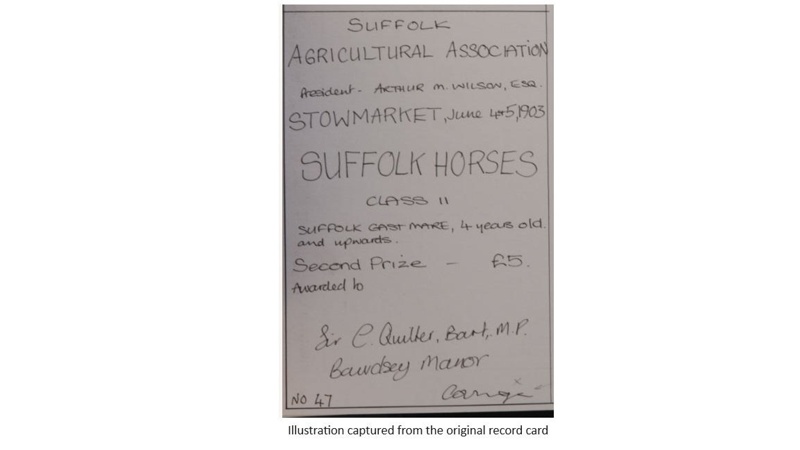 SUFFOLK
AGRICULTURAL ASSOCIATION
President - ARTHUR M. WILSON, ESQ.
STOWMARKET, June 4&5, 1903
SUFFOLK HORSES
CLASS 11
SUFFOLK GAST MARE, 4 years old.
and upwards.
Second Prize - £5.
Awarded to
Sir C. Quilter, Bart, M.P.
Bawdsey Manor
NO 47
Illustration captured from the original record card